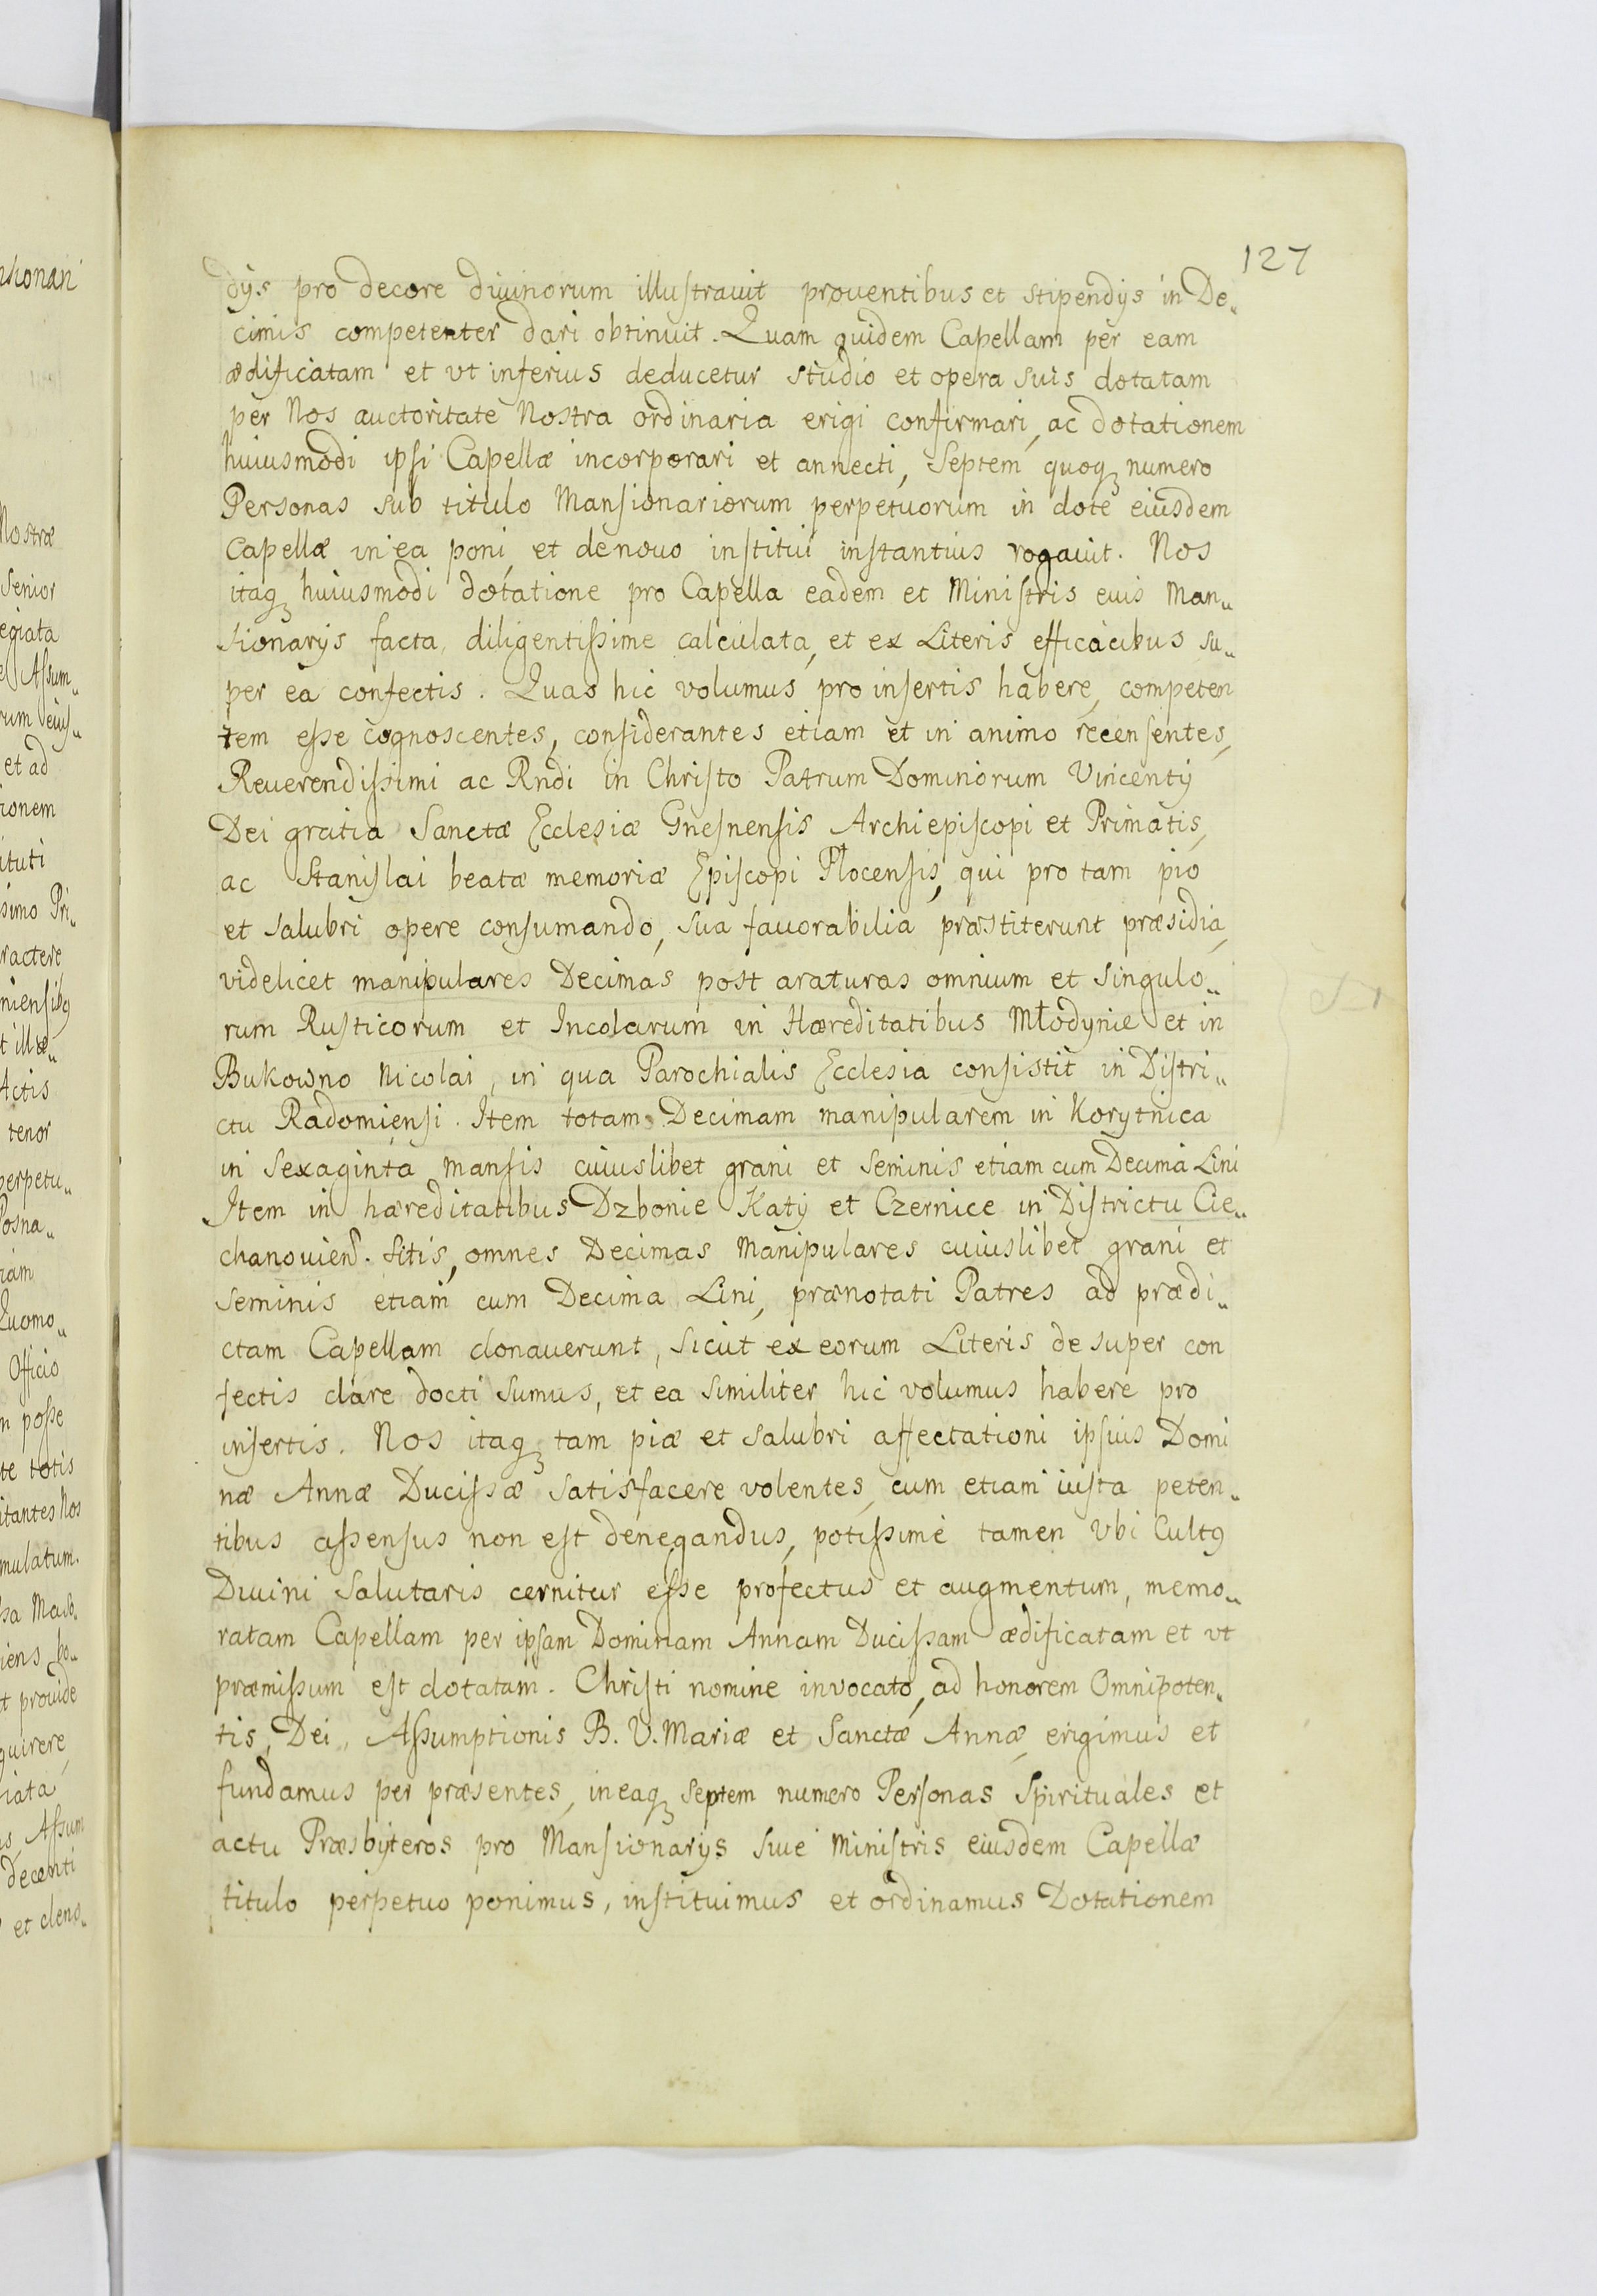 127
dijs pro decore diuinorum illustrauit prouentibus et stipendijs in De„
cimis competenter dari obtinuit. Quam quidem Capellam per eam
ædificatam et vt inferius deducetur studio et opera suis dotatam
per Nos auctoritate Nostra ordinaria erigi confirmari, ac dotationem
huiusmodi ipsi Capellæ incorporari et annecti, Septem quoq numero
Personas sub titulo Mansionariorum perpetuorum in dote eiusdem
Capellæ in ea poni, et denouo institui instantius rogauit. Nos
itaq huiusmodi dotatione pro Capella eadem et Ministris euis Man„
sionarijs facta, diligentissime calculata, et ex Literis efficacibus su„
per ea confectis. Quas hic volumus pro insertis habere, competen
tem esse cognoscentes, considerantes etiam et in animo recensentes,
Reuerendissimi ac Rndi in Christo Patrum Dominorum Vincentij
Dei gratia Sanctæ Ecclesiæ Gnesnensis Archiepiscopi et Primatis,
ac Stanislai beatæ memoriæ Episcopi Płocensis, qui pro tam pio
et salubri opere consumando, sua fauorabilia præstiterunt præsidia,
videlicet manipulares Decimas post araturas omnium et singulo„
rum Rusticorum et Incolarum in Hæreditatibus Młodynie et in
Bukowno Nicolai, in qua Parochialis Ecclesia consistit in Distri„
ctu Radomiensi. Item totam Decimam manipularem in Korytnica
in Sexaginta Mansis cuiuslibet grani et Seminis etiam cum Decima Lini
Item in hæreditatibus Dzbonie Katij et Czernice in Districtu Cie„
chanouiens. sitis, omnes Decimas Manipulares cuiuslibet grani et
Seminis etiam cum Decima Lini, prænotati Patres ad prædi„
ctam Capellam donauerunt, sicut ex eorum Literis de super con
fectis clare docti sumus, et ea similiter hic volumus habere pro
insertis. Nos itaq tam piæ et salubri affectationi ipsius Domi
næ Annæ Ducissæ satisfacere volentes, cum etiam iusta peten„
tibus assensus non est denegandus, potissime tamen vbi Cultꝯ
Diuini salutaris cernitur esse profectus et augmentum, memo„
ratam Capellam per ipsam Dominam Annam Ducissam ædificatam et vt
præmissum est dotatam. Christi nomine invocato, ad honorem Omnipoten„
tis, Dei, Assumptionis B. V. Mariæ et Sanctæ Annæ, erigimus et
fundamus per præsentes, in eaq septem numero Personas Spirituales et
actu Præsbyteros pro Mansionarijs siue Ministris eiusdem Capellæ
titulo perpetuo ponimus, instituimus et ordinamus Dotationem